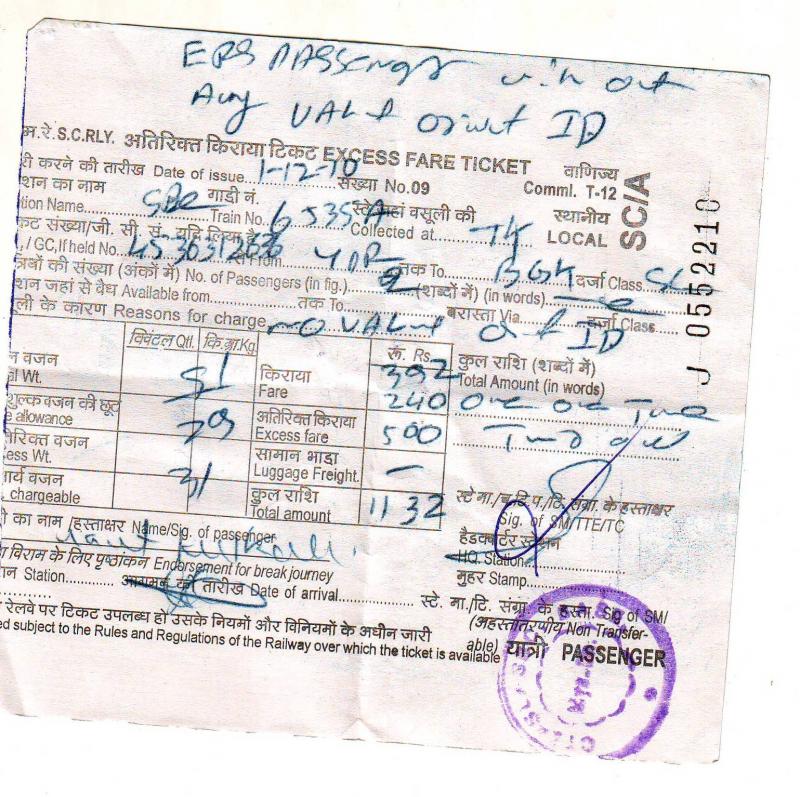 ERS PASSENGR with out
Any VALid ID
म.रे. S.C.RLY. अतिरिक्त किराया टिकट EXCESS FARE TICKET
वाणिज्य
री करने की तारीख Date of issue 1-12-10 संख्या No.09
Comml. T-12
शन का नाम गाडी नं. वसूली की
स्थानीय
tion Name Train No. 6535A Collected at
LOCAL
SC/A
J 0552210
कट संख्या/जी. सी. सं. यदि लिया है
/ GC,If held No. From YPR तक To दर्जा Class SL
त्रिओं की संख्या (अंकों में) No. of Passengers (in fig.) 2 (शब्दों में) (in words)
शन जहां से वैध Available from तक To बरास्ता Via दर्जा Class
ली के कारण Reasons for charge no VALid ID
क्विंटल Qtl. कि.ग्रा.Kg. रू. Rs. कुल राशि (शब्दों में)
न वजन 51 किराया 392
al Wt. Fare Total Amount (in words)
शुल्क वजन की छूट 29 अतिरिक्त किराया 240 One one Three
e allowance Excess fare 500 Two only
तिरिक्त वजन सामान भाडा
ess Wt. 31 Luggage Freight. —
आर्य वजन कुल राशि 1132
chargeable Total amount
स्टे मा./च.टि.प./टि. संग्रा. के हस्ताक्षर
Sig. of SM/TTE/TC
री का नाम /हस्ताक्षर Name/Sig. of passenger
हैडक्वार्टर स्टेशन
HQ. Station
ा विराम के लिए पृष्ठांकन Endorsement for break journey
मुहर Stamp
न Station आगमन की तारीख Date of arrival स्टे. मा./टि. संग्रा. के हस्ता. Sig of SM/
रेलवे पर टिकट उपलब्ध हो उसके नियमों और विनियमों के अधीन जारी
(अहस्तांतरणीय Non Transfer-
able)
ed subject to the Rules and Regulations of the Railway over which the ticket is available
यात्री PASSENGER